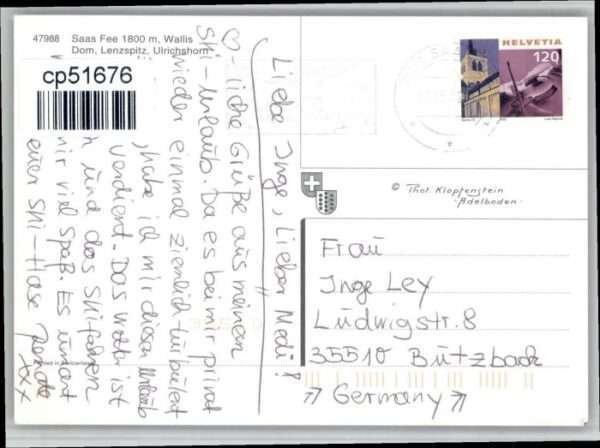 47988 Saas Fee 1800 m, Wallis
Dom, Lenzspitz, Ulrichshorn
cp51676
HELVETIA
120
© Phot. Klopfenstein
·Adelboden·
Liebe Inge, Lieber Medi!
♡-liche Grüße aus meinem
Ski-Urlaub. Da es bei mir privat
wieder einmal ziemlich turbulent
, habe ich mir diesen Urlaub
verdient. Das Wetter ist
und das Skifahren
mir viel Spaß. Es umarmt
euer Ski-Hase
xxx
Frau
Inge Ley
Ludwigstr. 8
35510 Butzbach
⇗ Germany ⇗